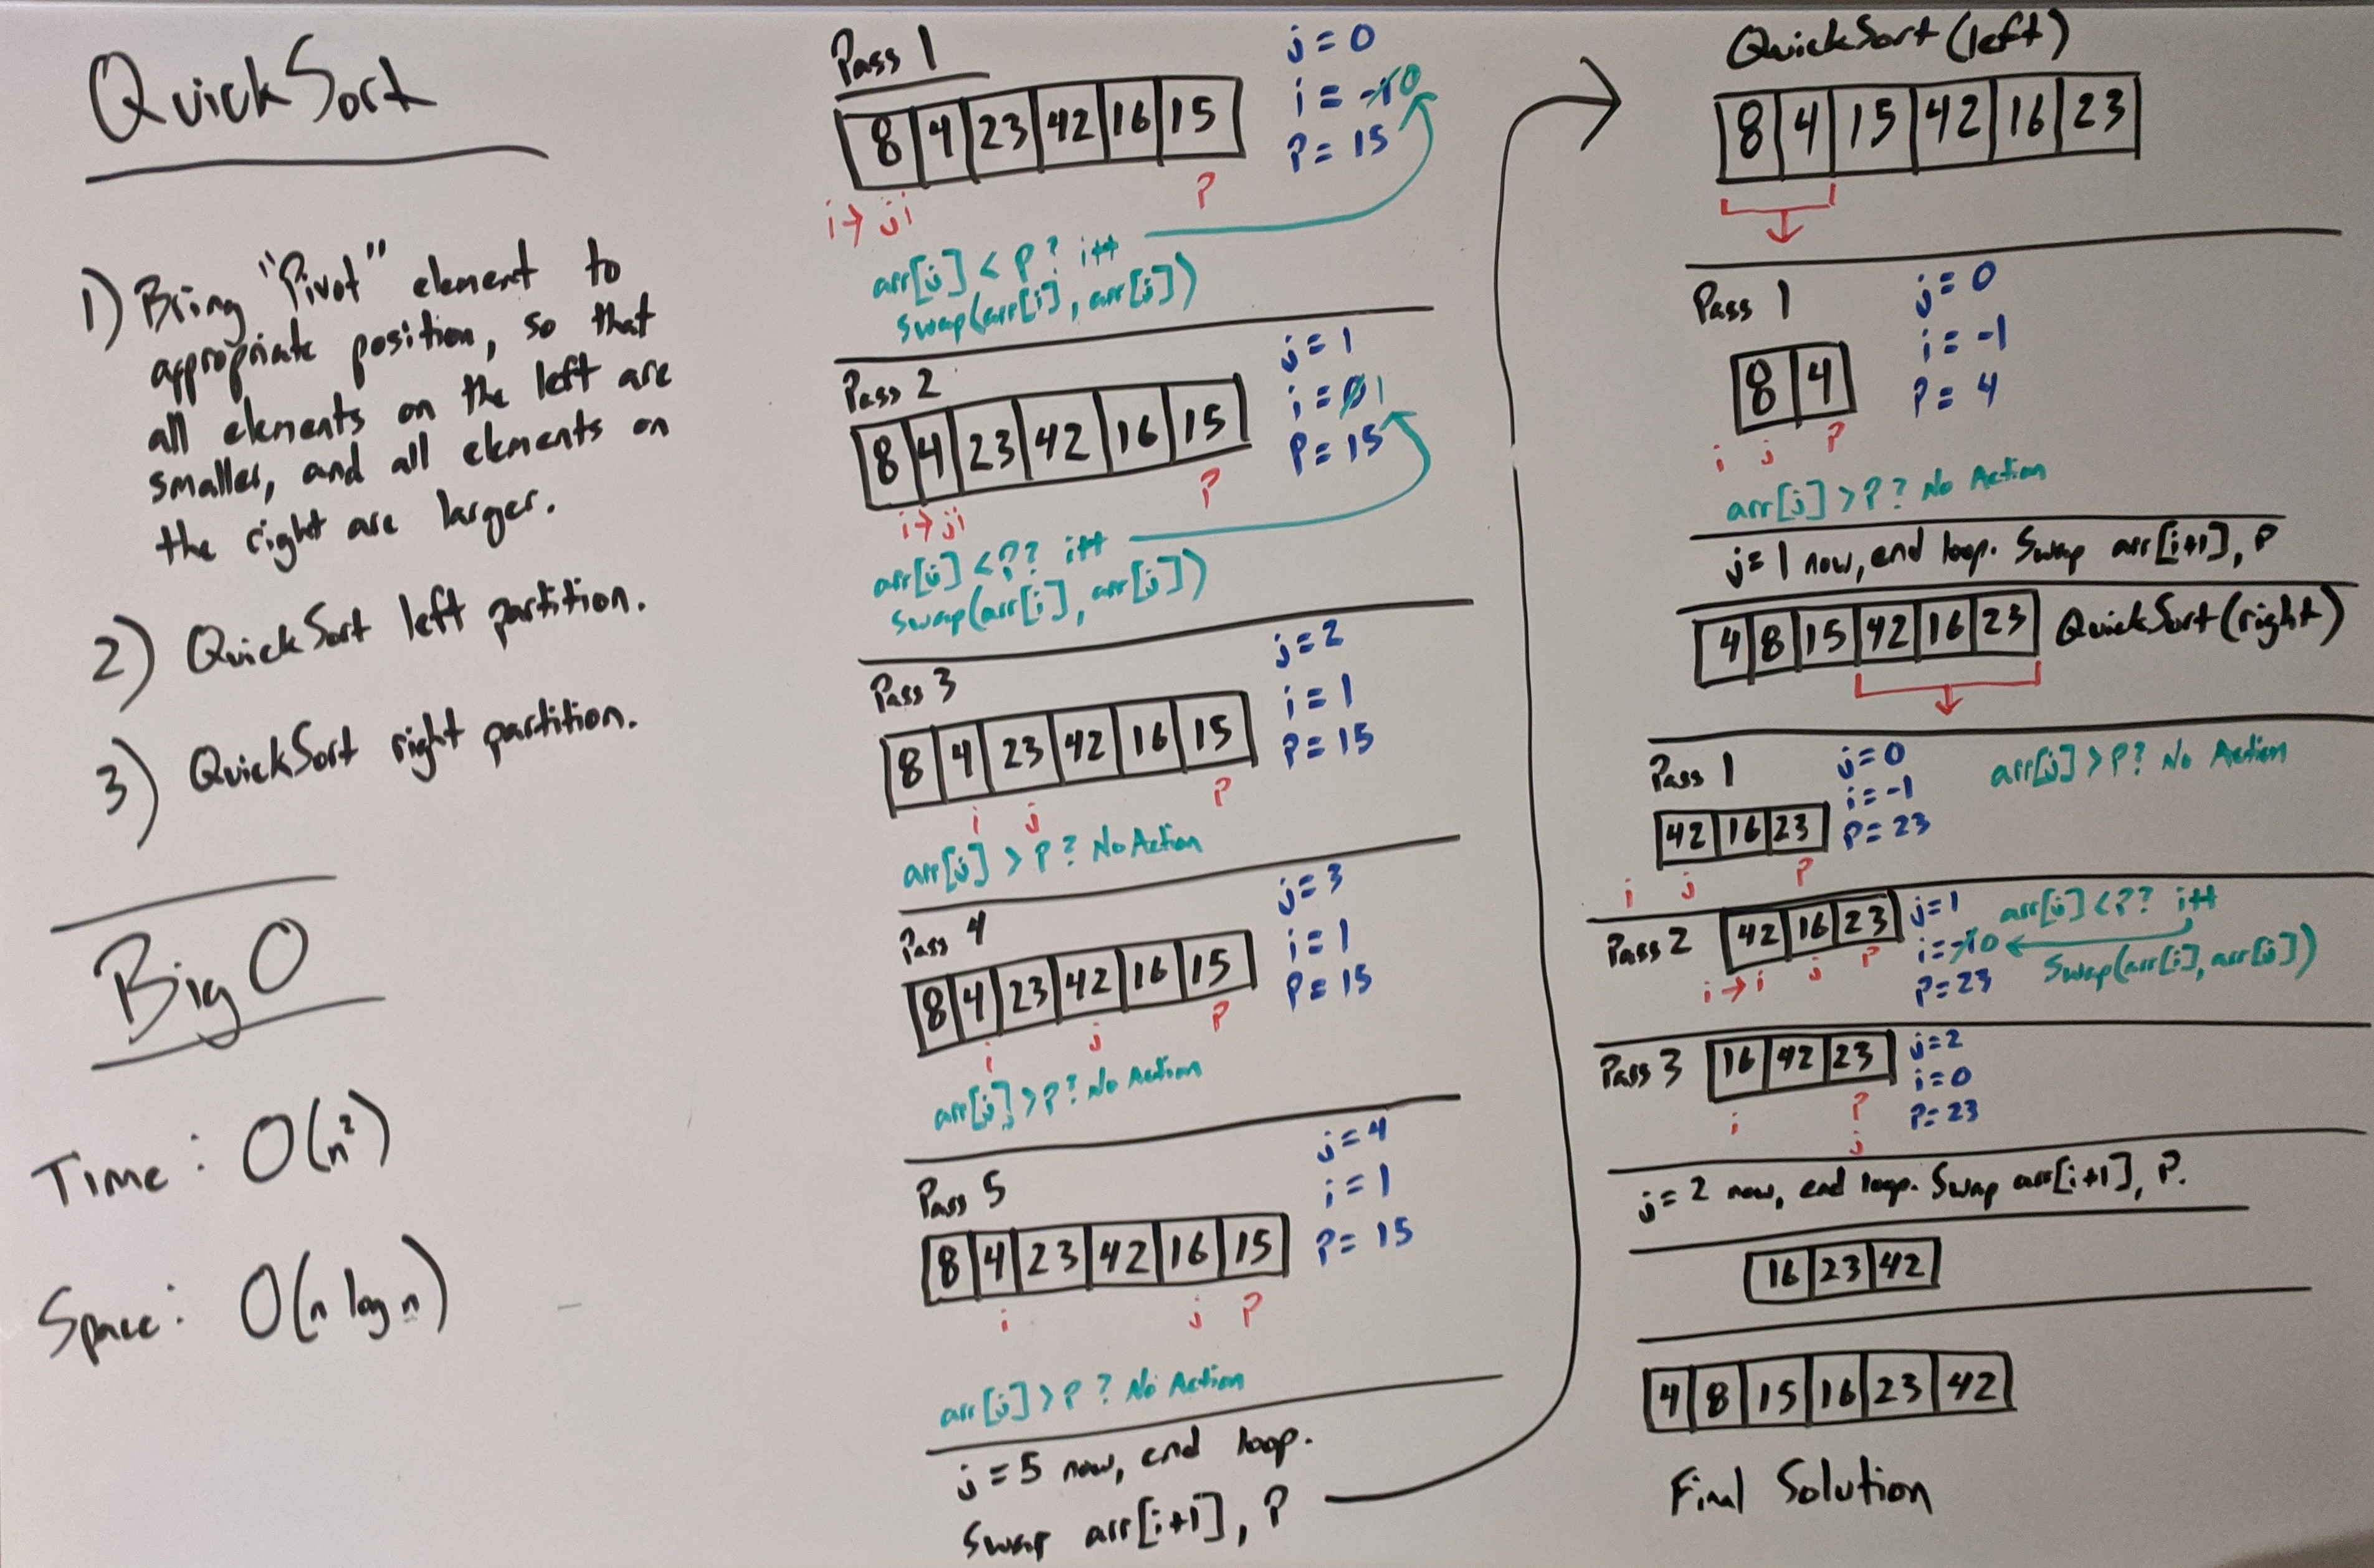 QuickSort
1) Bring "Pivot" element to
appropriate position, so that
all elements on the left are
smaller, and all elements on
the right are larger.
2) QuickSort left partition.
3) QuickSort right partition.
Big O
Time: O(n²)
Space: O(n log n)
Pass 1
j = 0
8 4 23 42 16 15
i = -1 0
P = 15
i → j i
P
arr[j] < P? i++
Swap(arr[i], arr[j])
Pass 2
j = 1
8 4 23 42 16 15
i = 0 1
P = 15
i → j i
P
arr[j] < P? i++
Swap(arr[i], arr[j])
Pass 3
j = 2
i = 1
8 4 23 42 16 15
P = 15
i j P
arr[j] > P? No Action
Pass 4
j = 3
i = 1
8 4 23 42 16 15
P = 15
i j P
arr[j] > P? No Action
Pass 5
j = 4
i = 1
8 4 23 42 16 15
P = 15
i j P
arr[j] > P? No Action
j = 5 now, end loop.
Swap arr[i+1], P
QuickSort(left)
8 4 15 42 16 23
Pass 1
j = 0
i = -1
8 4
P = 4
i j P
arr[j] > P? No Action
j = 1 now, end loop. Swap arr[i+1], P
4 8 15 42 16 23 QuickSort(right)
Pass 1
j = 0
arr[j] > P? No Action
i = -1
42 16 23
P = 23
i j P
Pass 2
42 16 23
j = 1
arr[j] < P? i++
i = -1 0
Swap(arr[i], arr[j])
P = 23
i → i j P
Pass 3
16 42 23
j = 2
i = 0
P = 23
i P
j
j = 2 now, end loop. Swap arr[i+1], P.
16 23 42
4 8 15 16 23 42
Final Solution